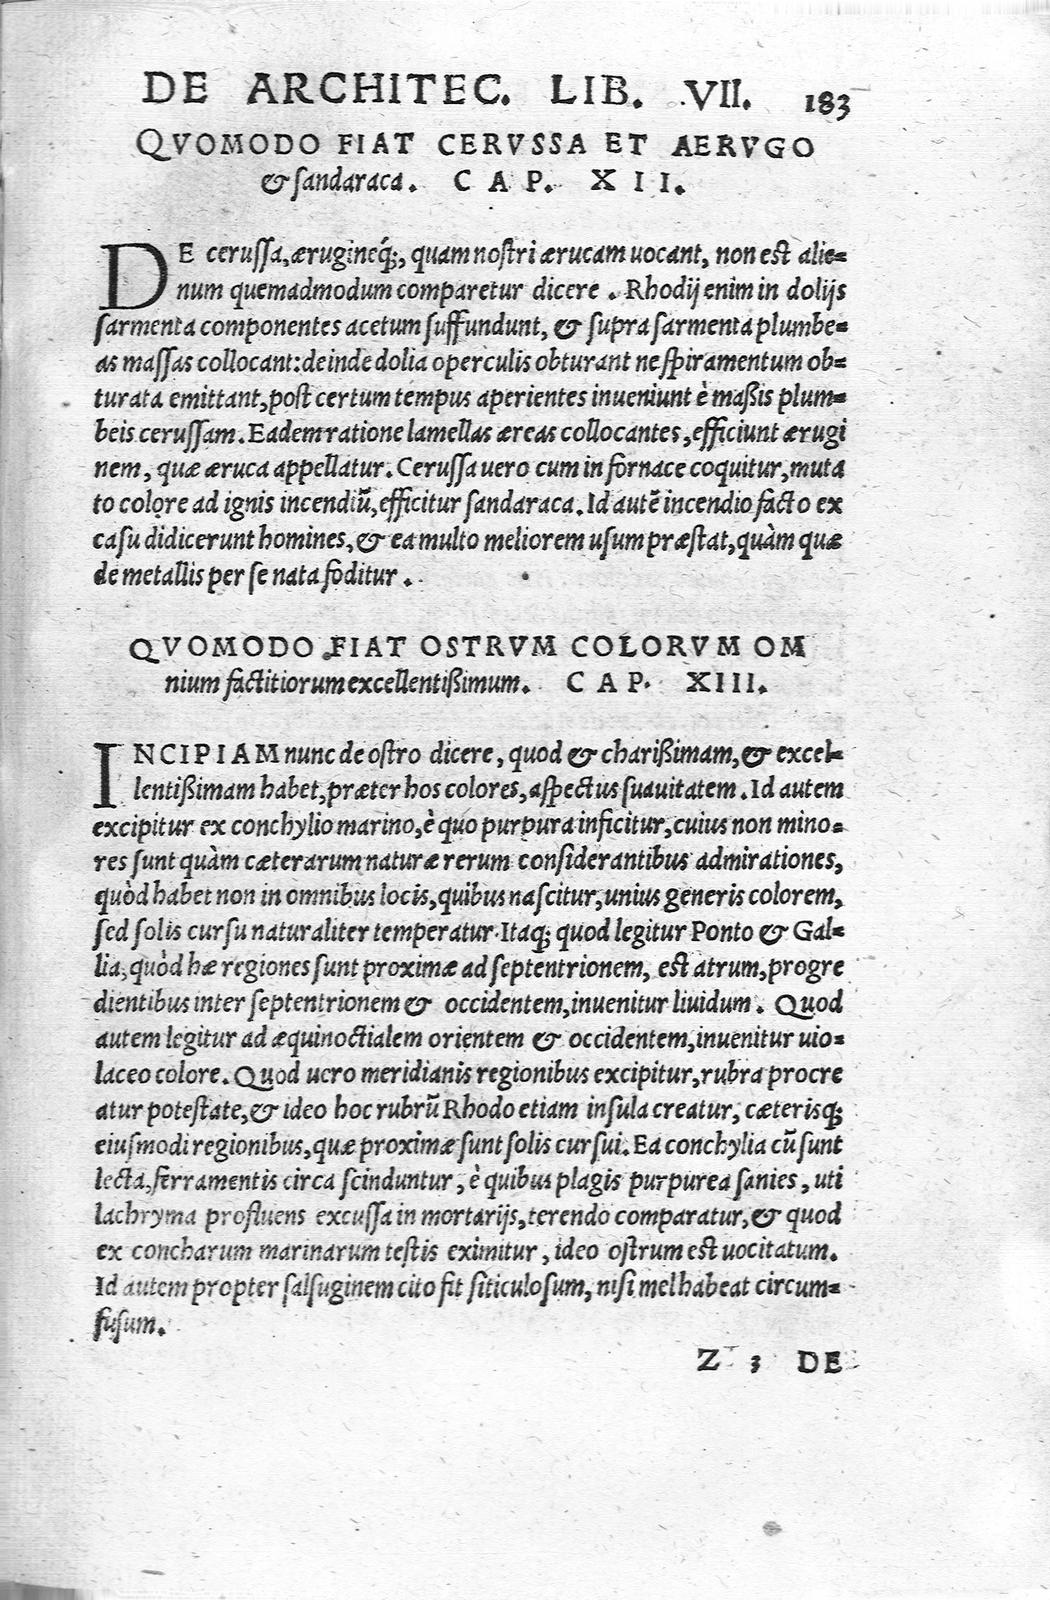 DE ARCHITEC. LIB. VII. 183
QVOMODO FIAT CERVSSA ET AERVGO
& sandaraca. CAP. XII.
DE cerussa, ærugineq́;, quam nostri ærucam uocant, non est alie=
num quemadmodum comparetur dicere. Rhodij enim in dolijs
sarmenta componentes acetum suffundunt, & supra sarmenta plumbe=
as massas collocant: deinde dolia operculis obturant ne spiramentum ob=
turata emittant, post certum tempus aperientes inueniunt è maßis plum=
beis cerussam. Eadem ratione lamellas æreas collocantes, efficiunt ærugi
nem, quæ æruca appellatur. Cerussa uero cum in fornace coquitur, muta
to colore ad ignis incendiũ, efficitur sandaraca. Id autẽ incendio facto ex
casu didicerunt homines, & ea multo meliorem usum præstat, quàm quæ
de metallis per se nata foditur.
QVOMODO FIAT OSTRVM COLORVM OM
nium factitiorum excellentißimum. CAP. XIII.
INCIPIAM nunc de ostro dicere, quod & charißimam, & excel=
lentißimam habet, præter hos colores, aspectus suauitatem. Id autem
excipitur ex conchylio marino, è quo purpura inficitur, cuius non mino=
res sunt quàm cæterarum naturæ rerum considerantibus admirationes,
quòd habet non in omnibus locis, quibus nascitur, unius generis colorem,
sed solis cursu naturaliter temperatur. Itaq; quod legitur Ponto & Gal=
lia, quòd hæ regiones sunt proximæ ad septentrionem, est atrum, progre
dientibus inter septentrionem & occidentem, inuenitur liuidum. Quod
autem legitur ad æquinoctialem orientem & occidentem, inuenitur uio=
laceo colore. Quod uero meridianis regionibus excipitur, rubra procre
atur potestate, & ideo hoc rubrũ Rhodo etiam insula creatur, cæterisq;
eiusmodi regionibus, quæ proximæ sunt solis cursui. Ea conchylia cũ sunt
lecta, ferramentis circa scinduntur, è quibus plagis purpurea sanies, uti
lachryma profluens excussa in mortarijs, terendo comparatur, & quod
ex concharum marinarum testis eximitur, ideo ostrum est uocitatum.
Id autem propter salsuginem cito fit siticulosum, nisi mel habeat circum=
fusum.
Z 3 DE